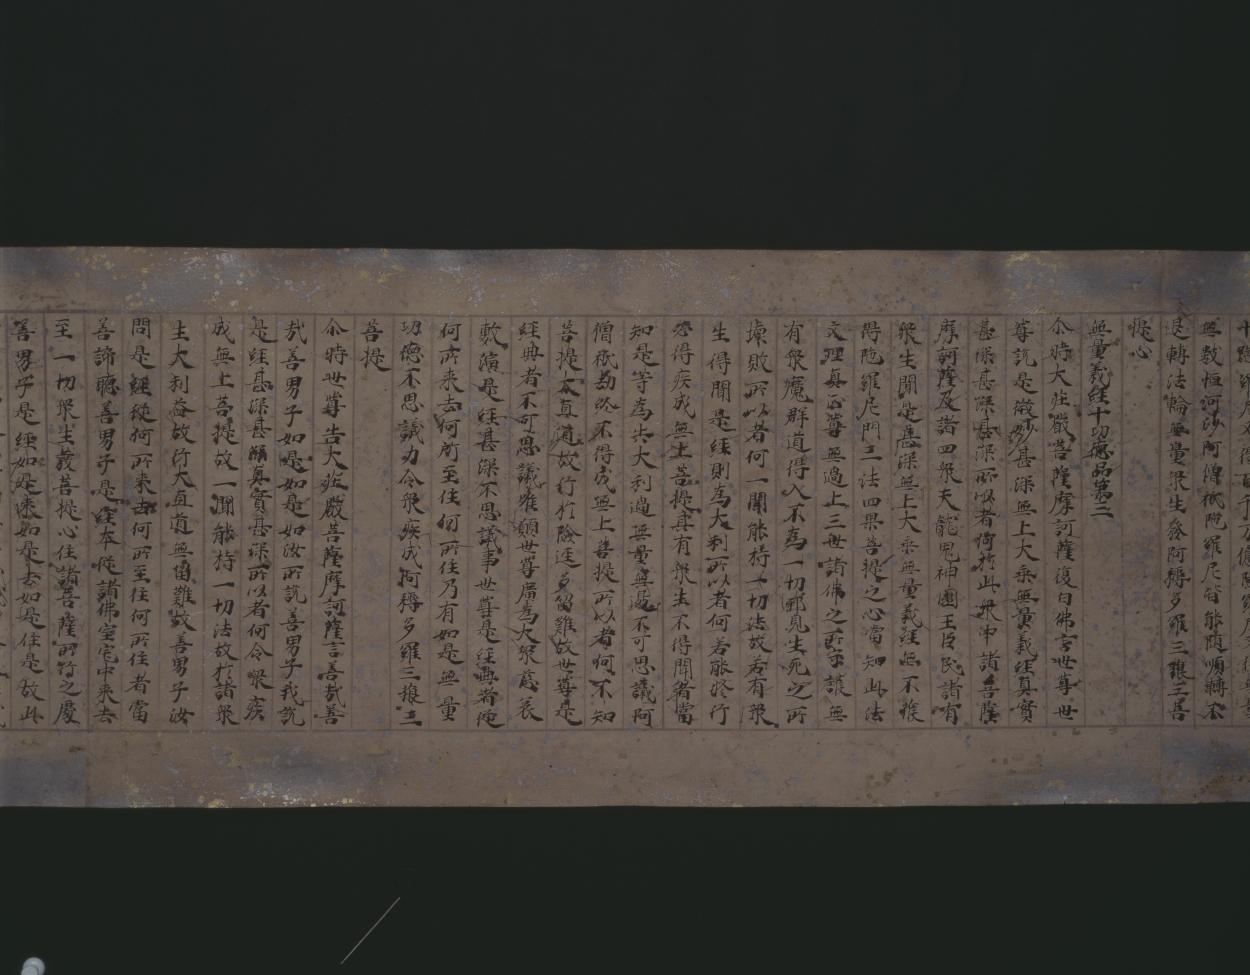 無數恒河沙阿僧祇陀羅尼皆能随順轉不
退轉法輪無量衆生發阿耨多羅三藐三菩
提心
無量義経十功徳品第三
尒時大荘嚴菩薩摩訶薩復白佛言世尊世
尊説是微妙甚深無上大乘無量義経真實
甚深甚深甚深所以者何於此衆中諸菩薩
摩訶薩及諸四衆天龍鬼神國王臣民諸有
衆生聞是甚深無上大乘無量義経無不獲
得陀羅尼門三法四果菩提之心當知此法
文理真正尊無過上三世諸佛之所守護無
有衆魔群道得入不為一切邪見生死之所
壊敗所以者何一聞能持一切法故若有衆
生得聞是経則為大利所以者何若能修行
必得疾成無上菩提其有衆生不得聞者當
知是等為失大利過無量無邊不可思議阿
僧祇劫終不得成無上菩提所以者何不知
菩提大直道故行於險逕多留難故世尊是
経典者不可思議唯願世尊廣為大衆慈哀
敷演是経甚深不思議事世尊是経典者從
何所来去何所至住何所住乃有如是無量
功徳不思議力令衆疾成阿耨多羅三藐三
菩提
尒時世尊告大荘嚴菩薩摩訶薩言善哉善
哉善男子如是如是如汝所説善男子我説
是経甚深甚深真實甚深所以者何令衆疾
成無上菩提故一聞能持一切法故於諸衆
生大利益故行大直道無留難故善男子汝
問是経從何所来去何所至住何所住者當
善諦聴善男子是経本從諸佛室宅中来去
至一切衆生發菩提心住諸菩薩所行之處
善男子是経如是来如是去如是住是故此